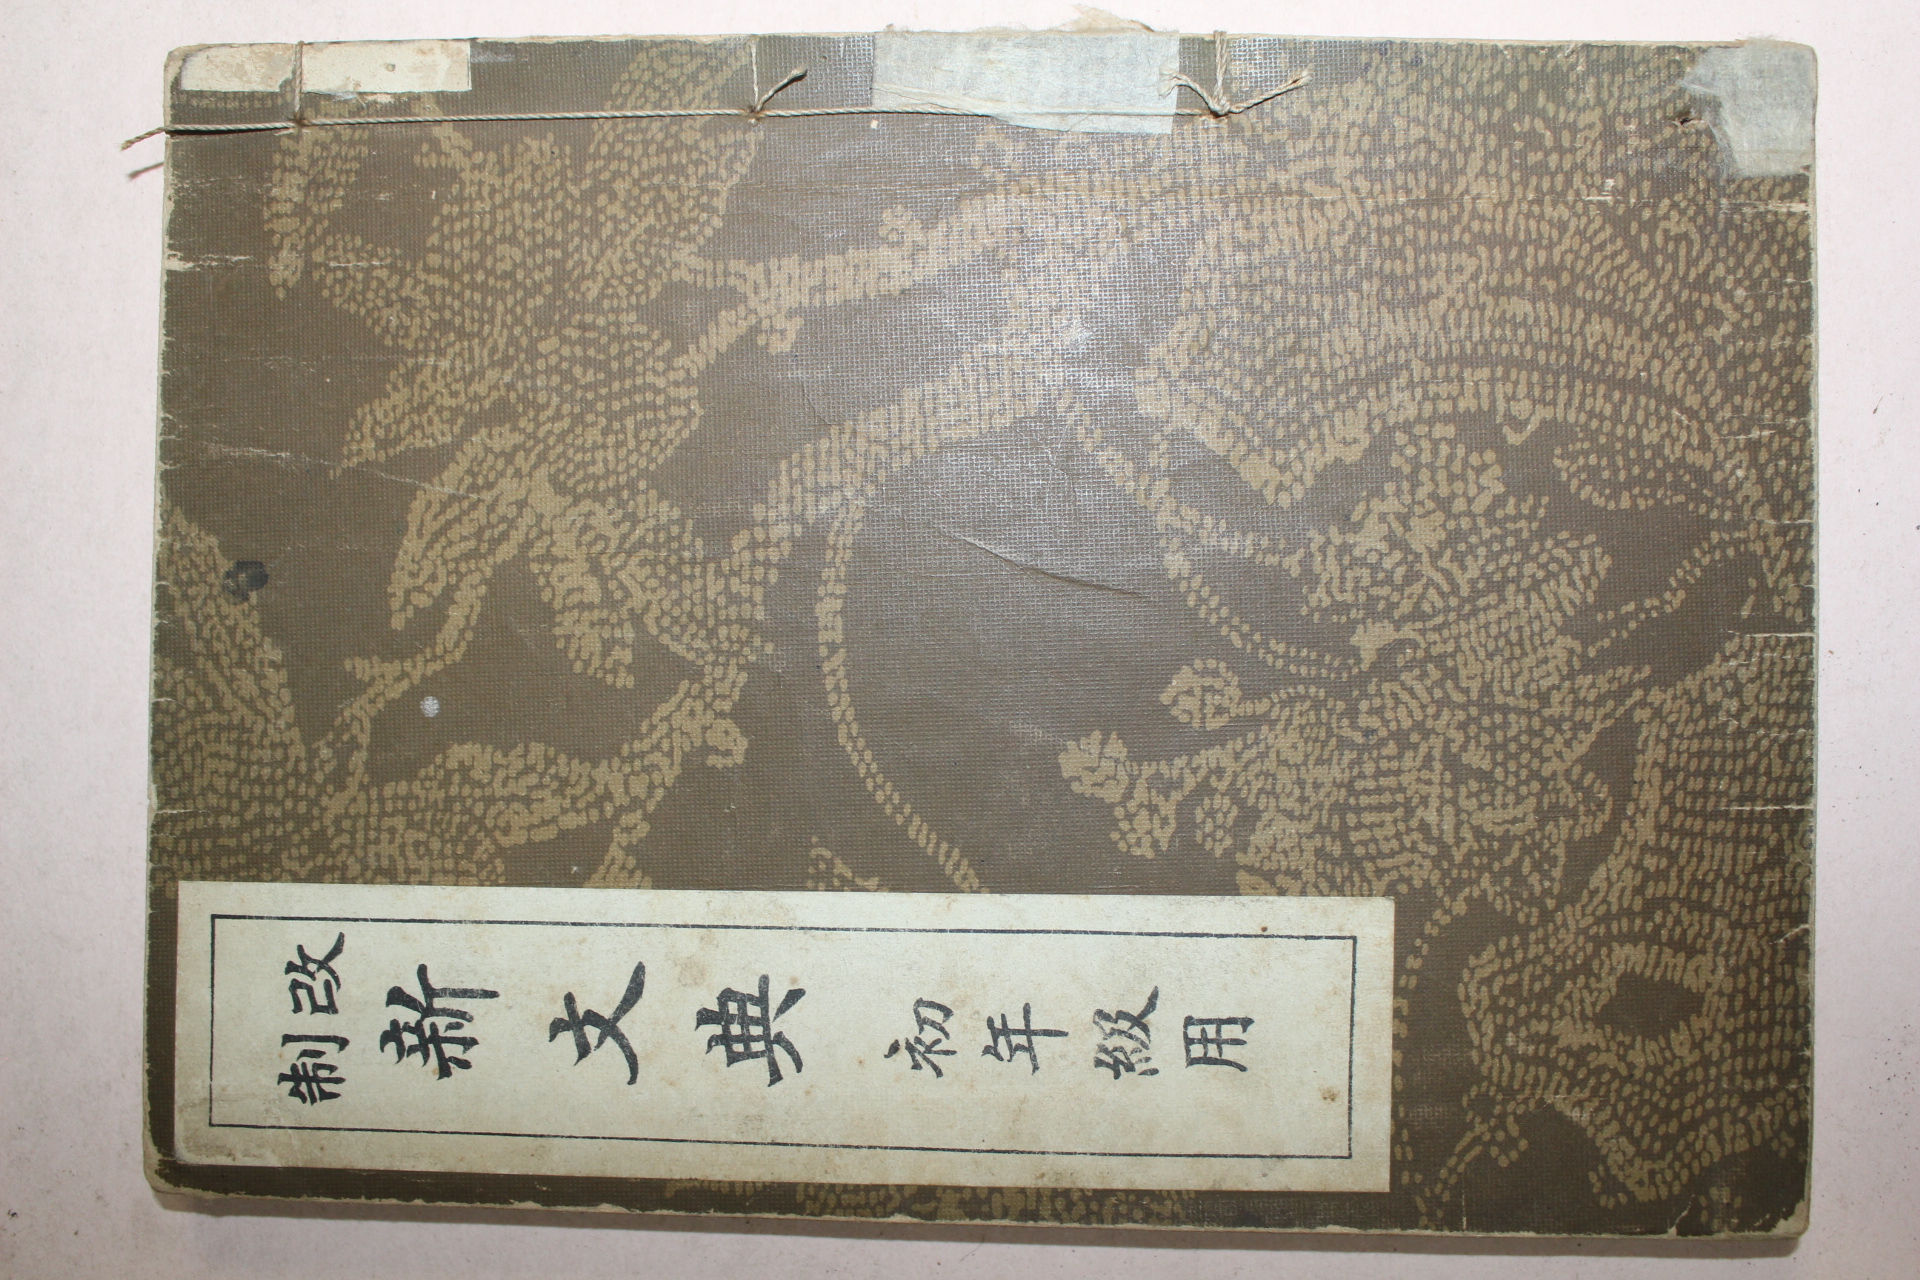 改制
新文典 初年級用